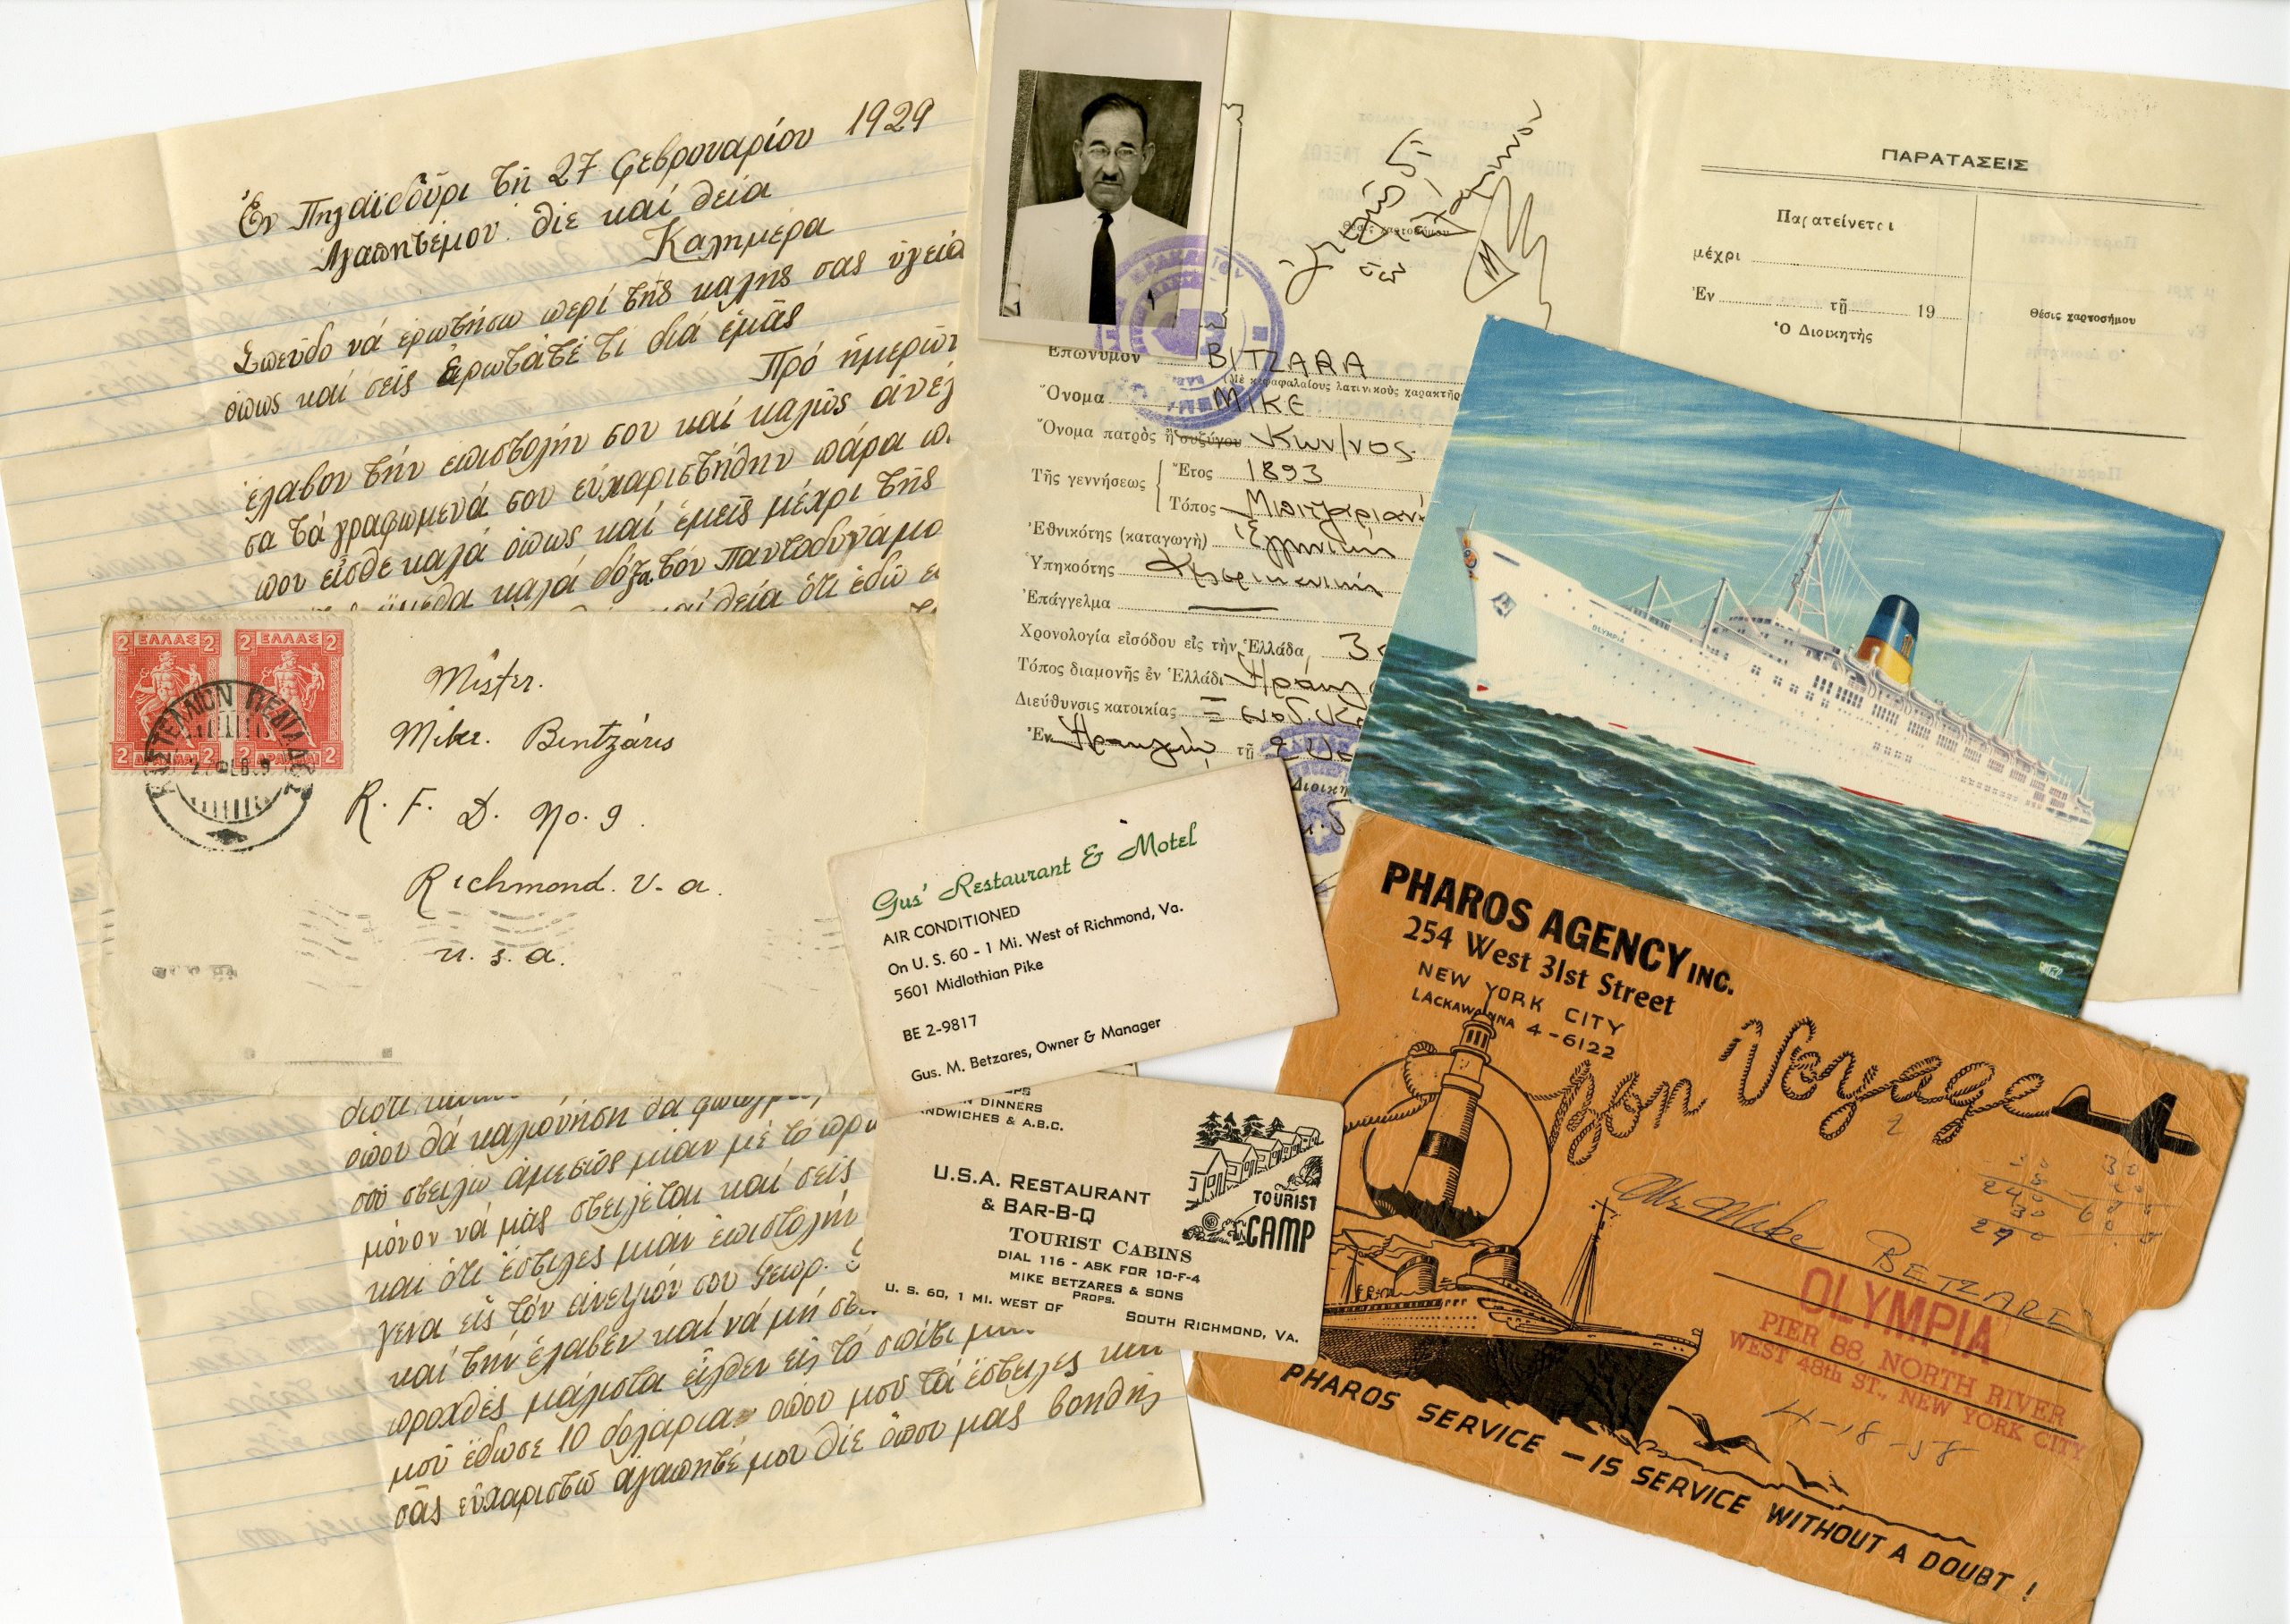 Ἐν Πηγαϊδοῦρι τῇ 27 Φεβρουαρίου 1929
Ἀγαπητέμου θίε καί θεία
Καλημέρα
Σπεῦδο νά ἐρωτήσω περί τῆς καλῆς σας ὑγεία
ὅπως καί σείς ἐρωτάτέ τι διά ἐμᾶς
Πρό ἡμερῶν
ἔλαβον τήν ἐπιστολήν σου καί καλῶς ἀνέγ
σα τά γραφωμενά σου εὐχαριστήθην πάρα π
που εἶσθε καλά ὅπως καί ἐμεῖς μέχρι τῆς
καλά δόξα τόν Παντοδυνάμο
καί θεία ὅτι ἐδῶ
ΕΛΛΑΣ 2
2 ΕΛΛΑΣ 2
2 ΔΡΑΧΜΑΙ 2
2 ΔΡΑΧΜΑΙ 2
Mister.
Mike. Bentzáris
R. F. D. No. 9.
Richmond. V-a.
U. S. a.
ὅπου θά καλιόνήση θά
σοῦ στείλω ἀμεσῶς μίαν μέ τό πρω
μόνον νά μᾶς στείλεται καί σείς
καί ὅτι ἔστιλες μιάν ἐπιστολήν
γενα εἰς τόν ἀνεψιόν σου Γεωρ.
καί τήν ἔλαβεν καί νά μή
προχθές μάλιστα εἶλθεν εἰς τό σπίτι
μοῦ ἔδωσε 10 δολάρια ὁπου μοῦ τά ἔστειλες
σᾶς εὐχαριστῶ ἀγαπητέ μου θίε ὅπου μας βοηθῆς
Ἐπώνυμον BITZARA
(Μὲ κεφαλαίους λατινικοὺς χαρακτῆρ
Ὄνομα MIKE
Ὄνομα πατρὸς ἢ συζύγου Κων/νος
Τῆς γεννήσεως
Ἔτος 1893
Τόπος Μπιτζαριανὰ
Ἐθνικότης (καταγωγὴ) Ἑλληνικὴ
Ὑπηκοότης Ἀμερικανικὴ
Ἐπάγγελμα
Χρονολογία εἰσόδου εἰς τὴν Ἑλλάδα 3
Τόπος διαμονῆς ἐν Ἑλλάδι Ἡράκλ
Διεύθυνσις κατοικίας
Ἐν Ἡρακλείῳ τῇ 9
Διοικη
ΠΑΡΑΤΑΣΕΙΣ
Παρατείνεται
μέχρι
Ἐν τῇ 19
Ὁ Διοικητὴς
Θέσις χαρτοσήμου
OLYMPIA
Gus' Restaurant & Motel
AIR CONDITIONED
On U. S. 60 - 1 Mi. West of Richmond, Va.
5601 Midlothian Pike
BE 2-9817
Gus. M. Betzares, Owner & Manager
DINNERS
NDWICHES & A.B.C.
U.S.A. RESTAURANT
& BAR-B-Q
TOURIST CABINS
DIAL 116 - ASK FOR 10-F-4
MIKE BETZARES & SONS
PROPS.
U. S. 60, 1 MI. WEST OF
SOUTH RICHMOND, VA.
TOURIST
CAMP
PHAROS AGENCY INC.
254 West 31st Street
NEW YORK CITY
LACKAWANNA 4-6122
Bon Voyage
Mr Mike BETZARE
OLYMPIA
PIER 88, NORTH RIVER
WEST 48th ST., NEW YORK CITY
4-18-58
PHAROS SERVICE — IS SERVICE WITHOUT A DOUBT !